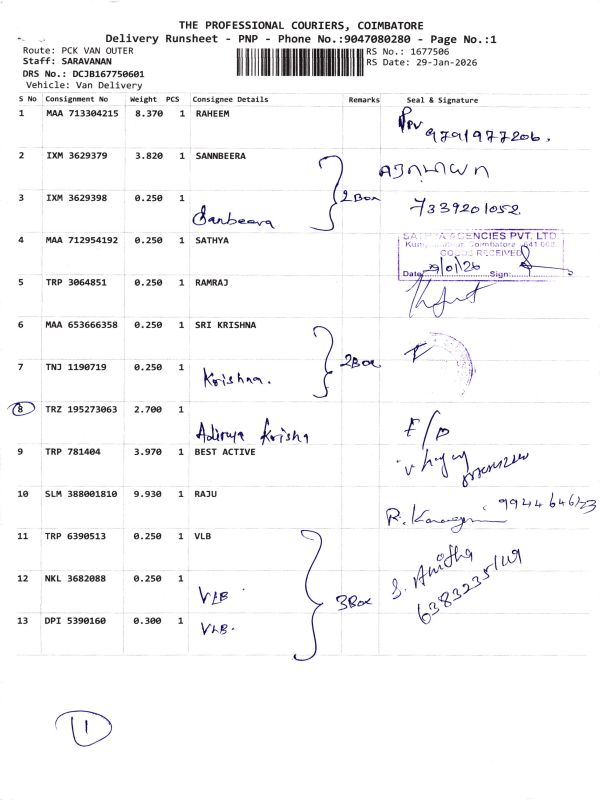 THE PROFESSIONAL COURIERS, COIMBATORE
Delivery Runsheet - PNP - Phone No.:9047080280 - Page No.:1
Route: PCK VAN OUTER
RS No.: 1677506
Staff: SARAVANAN
RS Date: 29-Jan-2026
DRS No.: DCJB167750601
Vehicle: Van Delivery
S No Consignment No Weight PCS Consignee Details Remarks Seal & Signature
1 MAA 713304215 8.370 1 RAHEEM
9791977206.
2 IXM 3629379 3.820 1 SANNBEERA
3 IXM 3629398 0.250 1 Sanbeera 2Box 7339201052
4 MAA 712954192 0.250 1 SATHYA
SATHYA AGENCIES PVT. LTD.
Coimbatore - 641 662.
GOODS RECEIVED
Date: 29/01/26 Sign:
5 TRP 3064851 0.250 1 RAMRAJ
6 MAA 653666358 0.250 1 SRI KRISHNA
7 TNJ 1190719 0.250 1 Krishna. 2Box
8 TRZ 195273063 2.700 1
Krisha
9 TRP 781404 3.970 1 BEST ACTIVE
10 SLM 388001810 9.930 1 RAJU
R.
11 TRP 6390513 0.250 1 VLB
12 NKL 3682088 0.250 1 VLB 3Box S. Anitha
13 DPI 5390160 0.300 1 VLB.
11